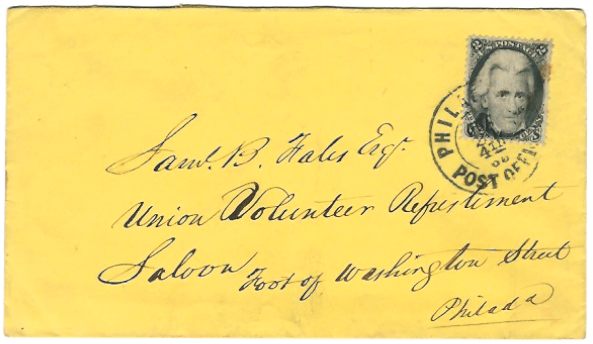 U.S. POSTAGE
PHILA
POST OFFI
Saml. B. Fales Esqr.
Union Volunteer Refrestiment
Saloon Foot of Washington Street
Philada